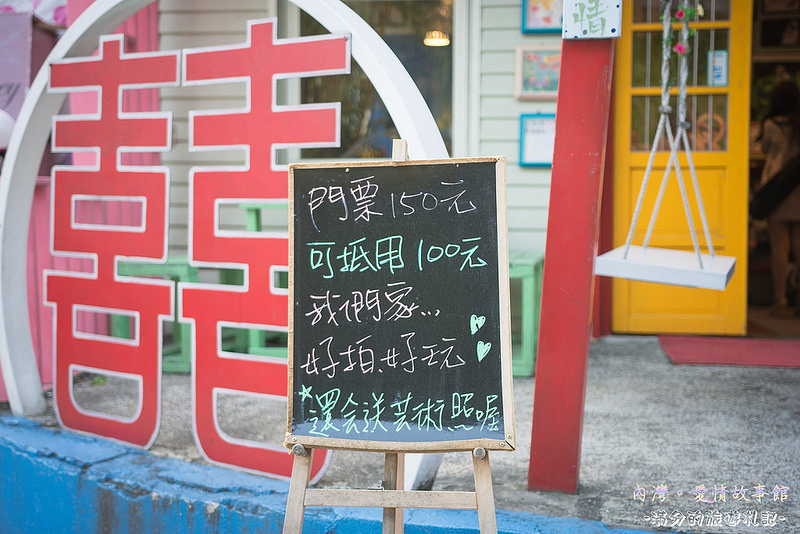 情
囍
門票150元
可抵用100元
我們家...
好拍、好玩
還會送藝術照喔
內灣。愛情故事館
-滿分的旅遊札記-